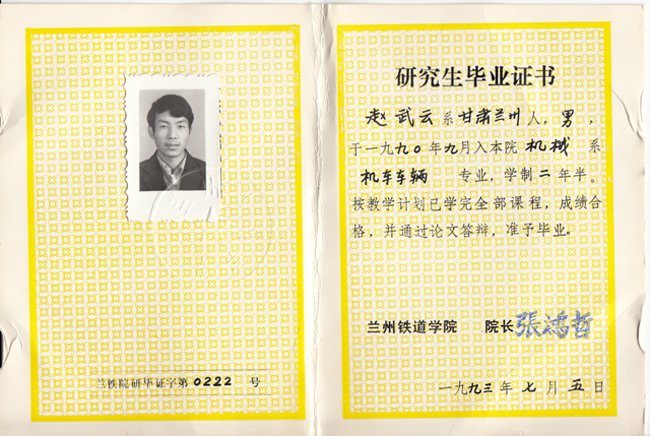 兰铁院研毕证字第0222号
研究生毕业证书
赵武云系甘肃兰州人，男，
于一九九〇年九月入本院机械系
机车车辆 专业，学制二年半。
按教学计划已学完全部课程，成绩合
格，并通过论文答辩，准予毕业。
兰州铁道学院 院长張鴻哲
一九九三年七月五日